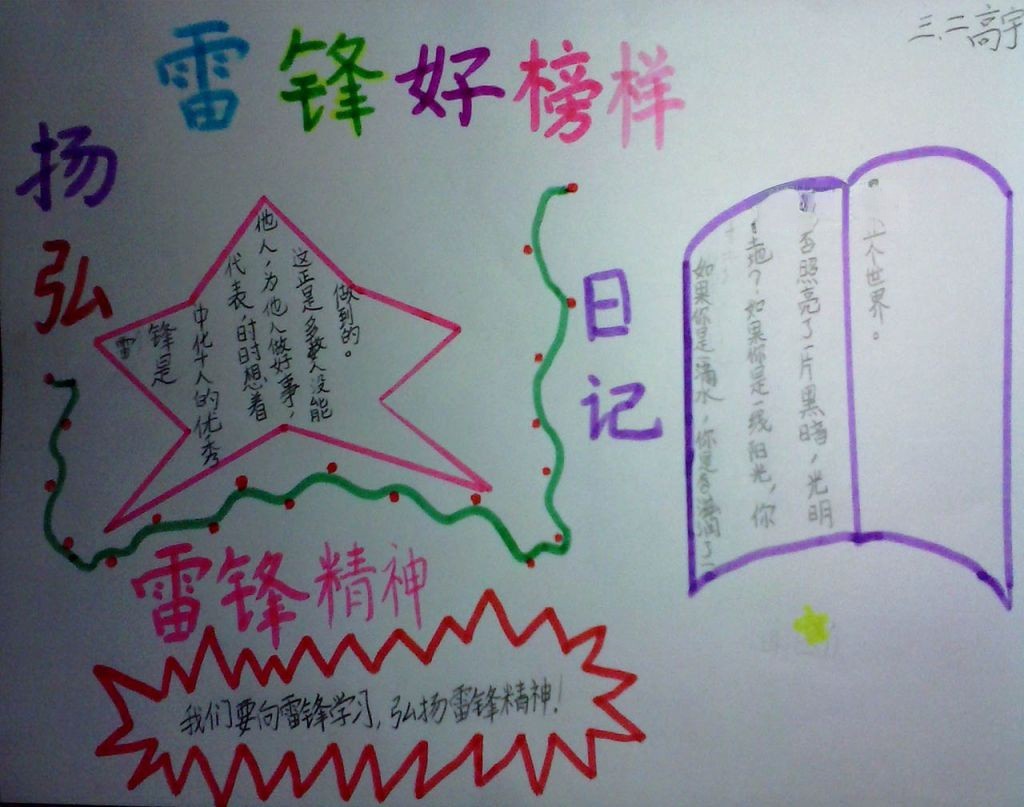 雷锋好榜样
三、二高宇
扬
弘
雷
锋是
中华人的优秀
代表,时时想着
他人,为他人做好事,
这正是多数人没能
做到的。
日记
如果你是一滴水,你是否滋润了一
土地?如果你是一线阳光,你
否照亮了一片黑暗,光明
个世界。
雷锋精神
我们要向雷锋学习,弘扬雷锋精神!